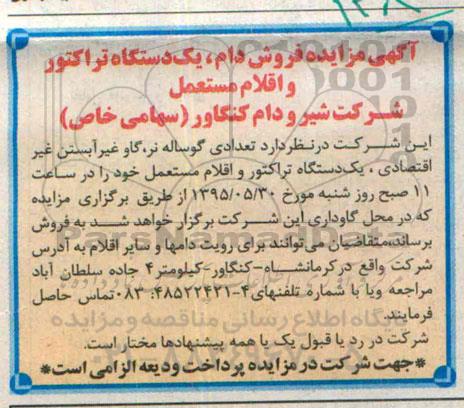 آگهی مزایده فروش دام، یک دستگاه تراکتور
و اقلام مستعمل
شرکت شیر و دام کنگاور (سهامی خاص)
این شرکت درنظردارد تعدادی گوساله نر،گاو غیرآبستن غیر
اقتصادی ، یک‌دستگاه تراکتور و اقلام مستعمل خود را در ساعت
۱۱ صبح روز شنبه مورخ ۱۳۹۵/۰۵/۳۰ از طریق برگزاری مزایده
که در محل گاوداری این شرکت برگزار خواهد شد به فروش
برساند،متقاضیان می‌توانند برای رویت دامها و سایر اقلام به آدرس
شرکت واقع درکرمانشاه-کنگاور-کیلومتر۴ جاده سلطان آباد
مراجعه ویا با شماره تلفنهای۴-۴۸۵۲۲۴۲۱: ۰۸۳ تماس حاصل
فرمایند.
شرکت در رد یا قبول یک یا همه پیشنهادها مختار است.
*جهت شرکت در مزایده پرداخت ودیعه الزامی است*